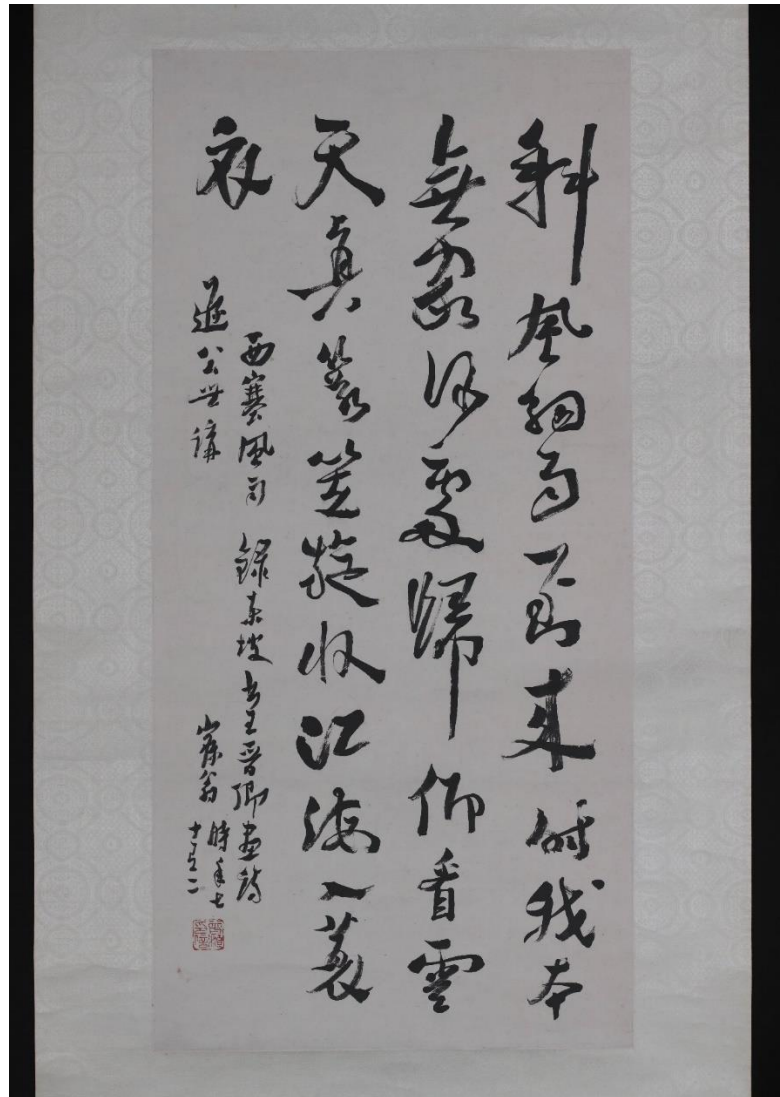 斜風細雨到來時我本
無家何處歸仰看雲
天真箬笠旋收江海入蓑
衣
西塞風雨 錄東坡書王晉卿畫詩
公世講
翁 時年七
十有二